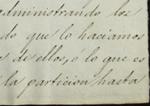 administrando los
do que lo haciamos
s de ellos, o lo que es
la particion hasta